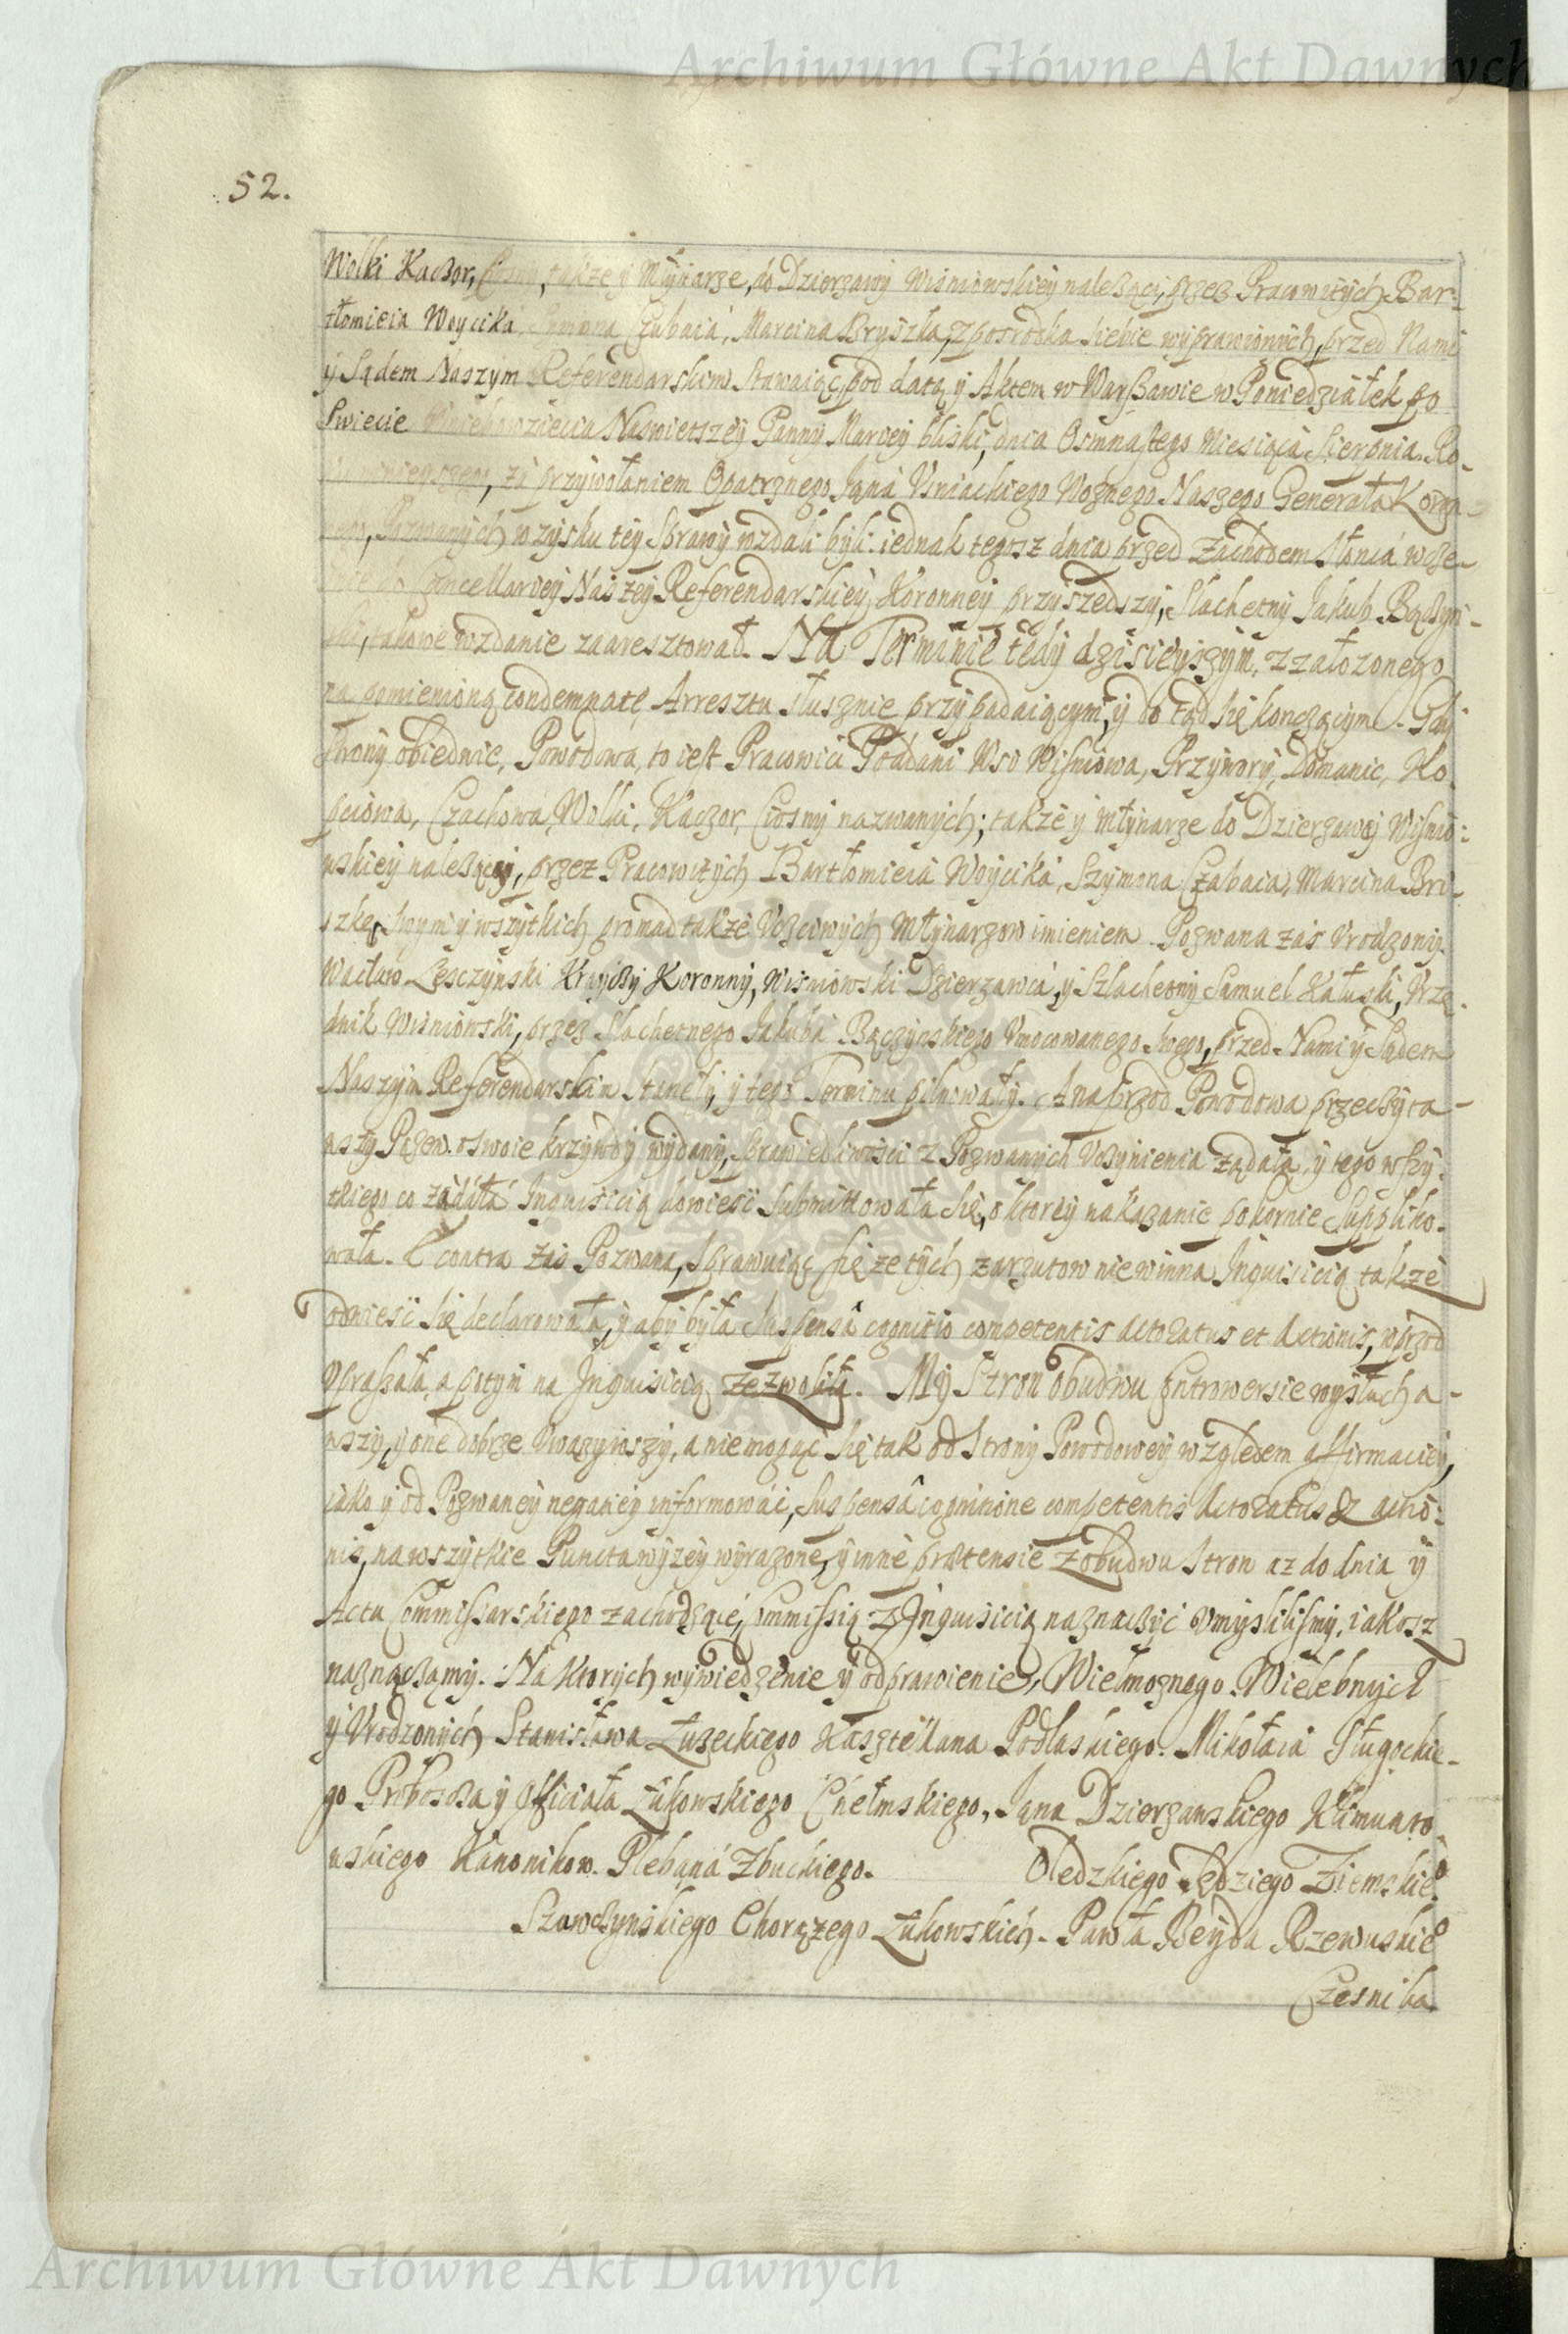 Archiwum Główne Akt Dawnych
52.
Wolki Kaczor, Ciosny, także ij Młynarze, do Dzierzawy Wisniowskiey należąci, przez Pracowitych Bar-
tłomieia Woycika, Szymona Czubaia, Marcina Bryszka, z posrodka siebie wyprawionych, przed Nami
ij Sądem Naszym Referendarskim stawaiąc, pod datą ij Aktem w Warszawie w Poniedziałek po
Swiecie Wniebowzięcia Naswietszey Panny Mariey bliski, dnia Osmnastego Miesiąca Sierpnia, Ro-
za przywołaniem Opatrznego Jana Uniackiego Woznego Naszego Generała Koron-
nego, Pozwanych w zysku tey Sprawy wzdali byli. iednak tegosz dnia przed Zachodem Słonca wcze-
snie do Cancellariey Naszey Referendarskiey Koronney przyszedszy, Slachetny Jakub Bączyn-
ski, takowe wzdanie zaaresztował. Na Terminie tedy dzisieyszym, z założonego
na pomienioną condemnatę Arresztu słusznie przypadaiącym, ij do tąd się konczącym. Gdy
Strony obiednie, Powodowa, to iest Pracowici Poddani Wsi Wisniowa, Przywory, Domanic, Ko-
pciowa, Czachowa, Wolki, Kaczor, Ciosny nazwanych; także ij młynarze do Dzierzawy Wisnio-
wskiey należący, przez Pracowitych Bartłomieia Woycika, Szymona Czabaia, Marcina Bri-
szkę, swym ij wszytkich gromad także Uczciwych Młynarzow imieniem. Pozwana zas Urodzony
Wacław Leszczynski Krayczy Koronny, Wisniowski Dzierzawca, ij Szlachetny Samuel Załuski, Urzę-
dnik Wisniowski, przez Slachetnego Jakuba Bączynskiego Umocowanego swego, przed Nami ij Sądem
Naszym Referendarskim stanęły, ij tego Terminu pilnowały. A naprzod Powodowa przeczyta-
wszy Pozew o swoie krzywdy wydany, sprawiedliwosci z Pozwanych Uczynienia żądała, ij tego wszy-
tkiego co żądała Inquisicią dowiesc submittowała się, o ktorey nakazanie pokornie suppliko-
wała. E contra zas Pozwana, sprawuiąc się ze tych zarzutow niewinna Inquisicią także
odwiesc się declarowała, ij aby była suspensâ cognitio competentis actoratus et actionis, wprzod
upraszała, a potym na Inquisicią zezwoliła. My Stron obudwu controwersie wysłucha-
wszy, ij one dobrze Uwazywszy, a nie mogąc się tak od Strony Powodowey względem affirmaciey,
iako ij od Pozwaney negaciey informować, suspensâ cognitione competentis actoratus & actio-
nis, na wszytkie Puncta wyzey wyrazone, ij inne prætensie z obudwu Stron az do dnia ij
Actu Commissarskiego zachodzące, Commissią z Inquisicią naznaczyć umyslilismy, iakosz
naznaczamy. Na ktorych wywiedzenie ij odprawienie, Wielmoznego Wielebnych
ij Urodzonych Stanisława Łuzeckiego Kasztellana Podlaskiego. Mikołaia Długockie-
go Proboszcza ij Officiała Łukowskiego Chełmskiego, Jana Dzierzawskiego Kamnaro-
wskiego Kanonikow. Plebana Zbuckiego. Oledzkiego Sędziego Ziemskieo
Szawczynskiego Chorązego Łukowskich. Pawła Beyda Rzewuskieo
Czesnika
Archiwum Główne Akt Dawnych